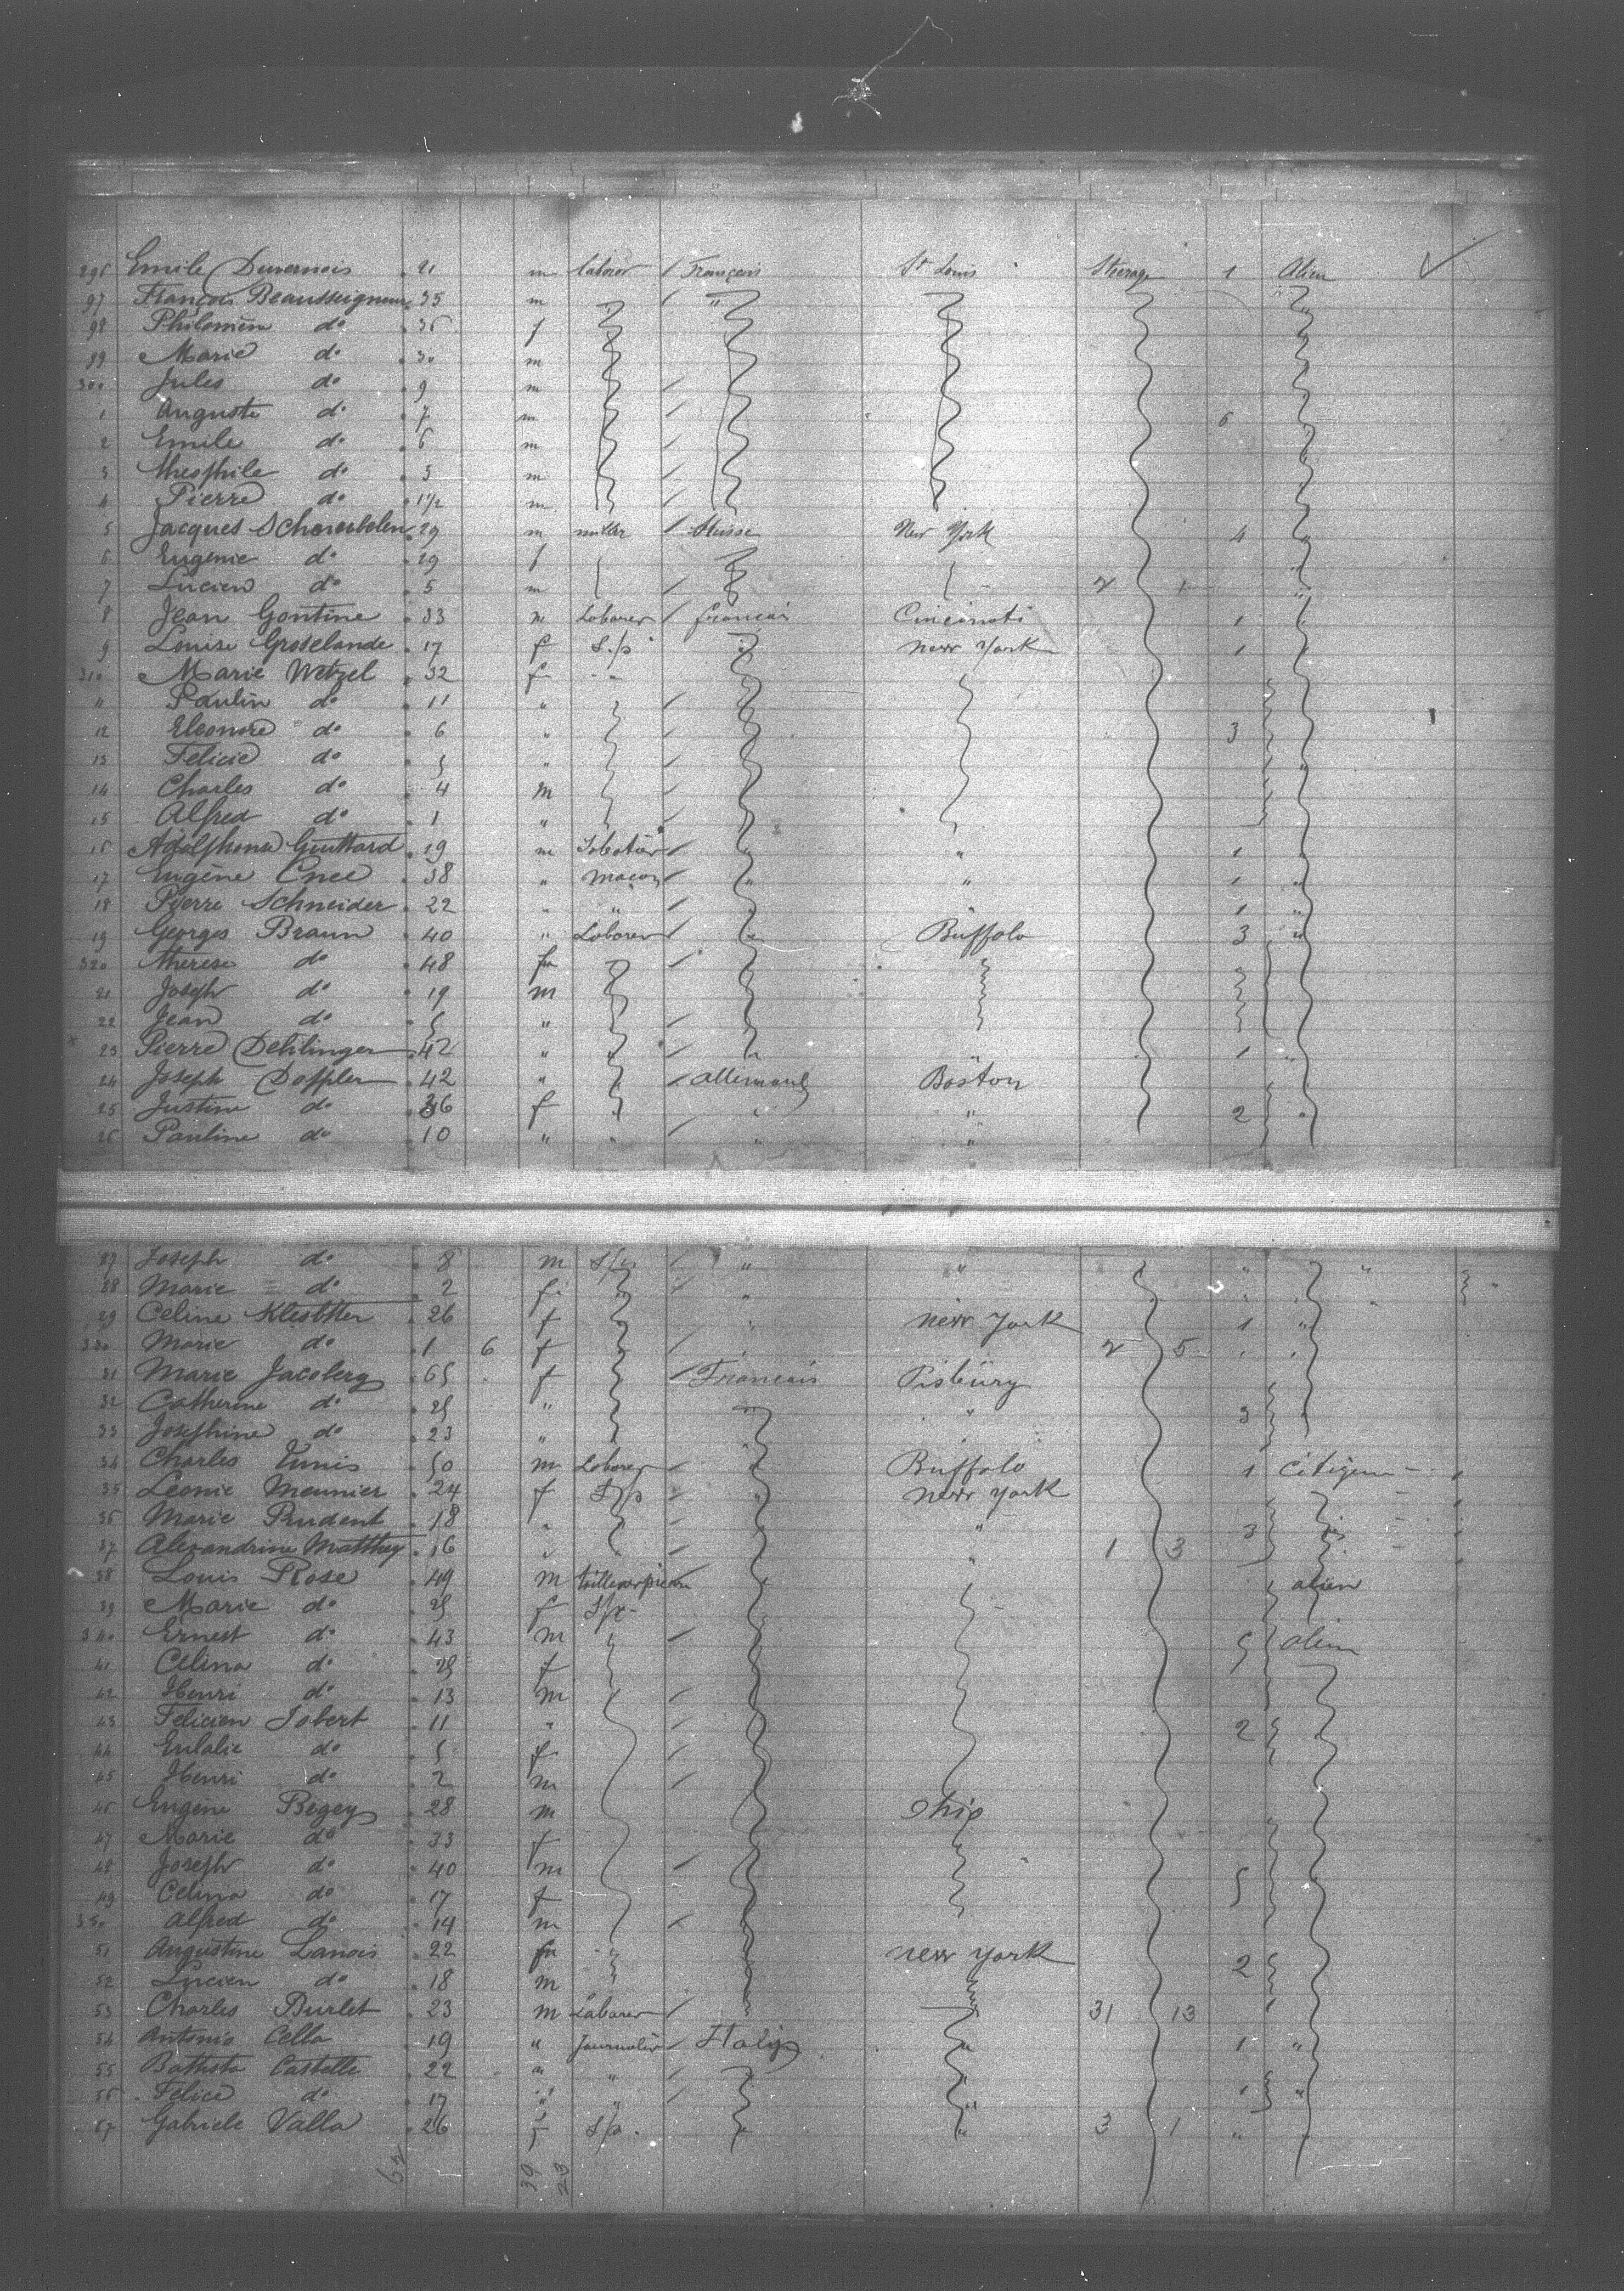 296 Emile Duvernois 21 m laborer / Français St Louis Steerage 1 Alien
97 François Beausseigneur 35 m / "
98 Philomène do 36 f
99 Marie do 30 m
300 Jules do 9 m /
1 Auguste do 7 m / 6
2 Emile do 6 m /
3 Theophile do 3 m /
4 Pierre do 1 1/2 m /
5 Jacques 29 m miller / Suisse New York 4
6 Eugenie do 29 f
7 Lucien do 5 m / 2 1
8 Jean Gontine 33 m Laborer / français Cincinati 1
9 Louise Groselande 17 f S/p new york 1
310 Marie Wetzel 32 f
11 Paulin do 11 " /
12 Eleonore do 6 " / 3
13 Felicie do 5 " /
14 Charles do 4 m /
15 Alfred do 1 " /
16 Guittard 19 m Sabotier / " " 1
17 Eugène Cnee 38 " macon / " " 1 "
18 Pierre Schneider 22 " " / " " 1 "
19 Georges Braun 40 " Laborer / " Buffalo 3 "
320 therese do 48 f /
21 Joseph do 19 m
22 Jean do 5 " /
23 Pierre Dehlinger 42 " " / 1 "
24 Joseph Doffler 42 " / allemand Boston
25 Justine do 36 f " " 2 "
26 Pauline do 10 " " / " "
27 Joseph do 8 m S/p / " " " " "
28 Marie do 2 f / "
29 Celine 26 f " new york 1 "
330 Marie do 1 6 f / 2 5
31 Marie Jacoberg 65 f / Francais Pisbury
32 Catherine do 25 " " 3
33 Josephine do 23 "
34 Charles Tunis 50 m Laborer / " Buffalo 1 Citizen
35 Léonie Meunier 24 f S/p / " new york
36 Marie Prudent 18 " / " 3
37 Alexandrine Matthey 16 " / " 1 3
38 Louis Rose 49 m / alien
39 Marie do 25 f S/p
340 Ernest do 43 m / 5 alien
41 Celina do 25 f
42 Henri do 13 m /
43 Felicien Jobert 11 " / 2
44 Eulalie do 5 f /
45 Henri do 2 m /
46 Eugène Begey 28 m Ohio
47 Marie do 33 f
48 Joseph do 40 m / 5
49 Celina do 17 f
350 Alfred do 14 m /
51 Augustine Lanois 22 f new york 2
52 Lucien do 18 m
53 Charles Burlet 23 m Laborer / 31 13 1
54 Antonio Cella 19 " Journalier / Italy 1 "
55 Battista Castelle 22 " " /
56 Felice do 17 " " / 1 "
57 Gabriele Valla 26 f S/p " 3 1 "
62 39 23